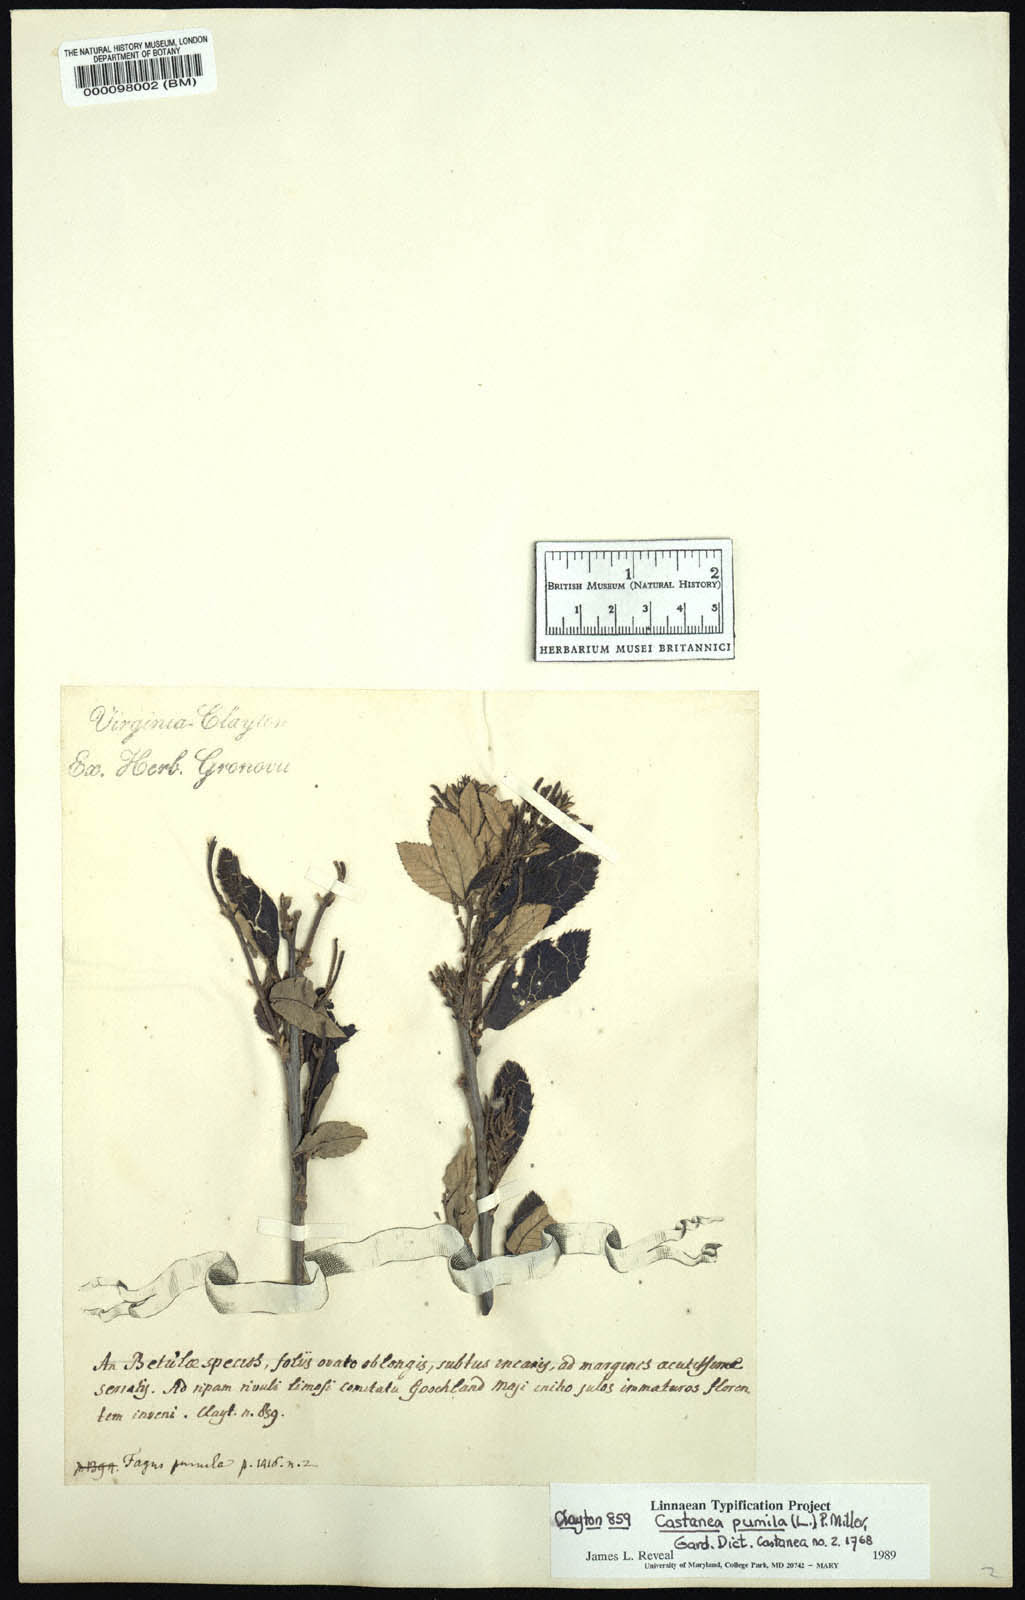 THE NATURAL HISTORY MUSEUM, LONDON
DEPARTMENT OF BOTANY
000098002 (BM)
1 2
BRITISH MUSEUM (NATURAL HISTORY)
1 2 3 4 5
HERBARIUM MUSEI BRITANNICI
Virginia-Clayton
Ex. Herb. Gronovii
An Betulæ species, foliis ovato oblongis, subtus incanis, ad margines acutissime
serratis. Ad ripam rivuli limosi comitatu Goochland Maji initio julos immaturos floren
tem inveni. Clayt. n. 859.
Fagus pumila p. 1416. n. 2
Linnaean Typification Project
Clayton 859 Castanea pumila (L.) P. Miller,
Gard. Dict. Castanea no. 2. 1768
James L. Reveal 1989
University of Maryland, College Park, MD 20742 – MARY
2